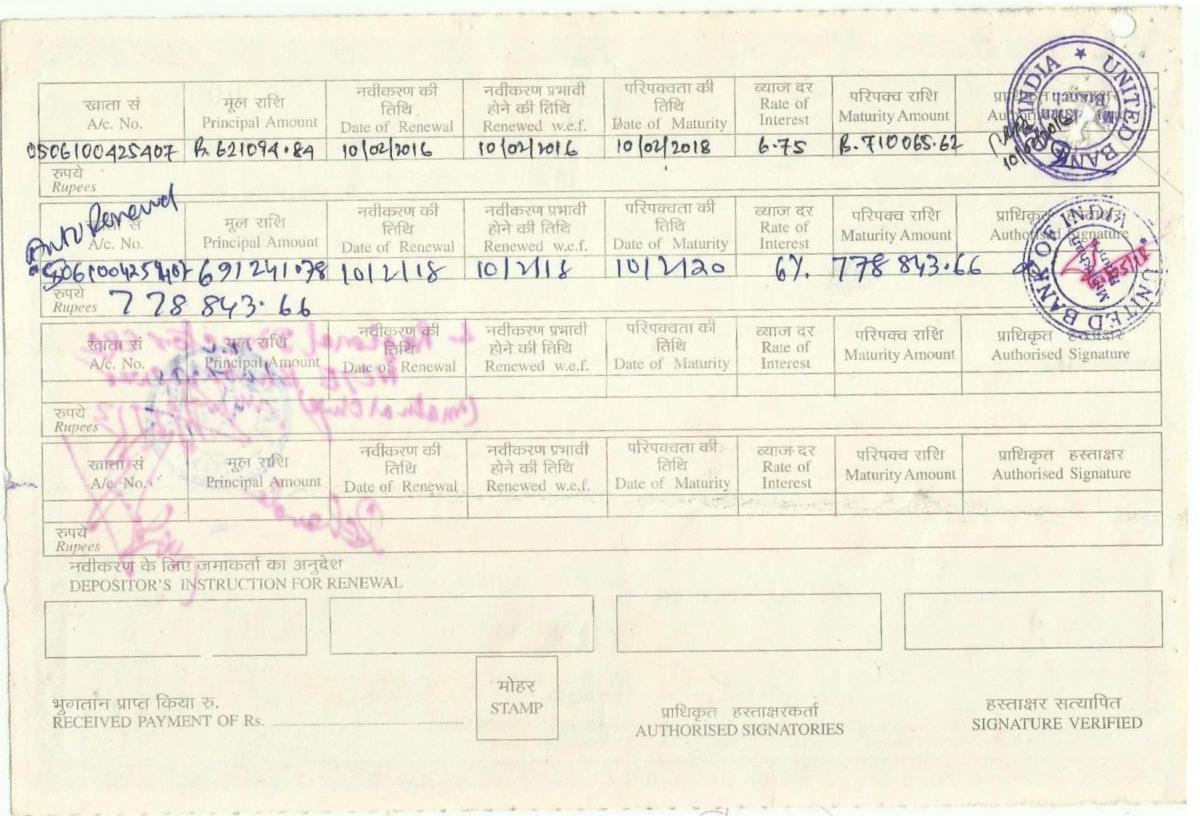 खाता सं मूल राशि नवीकरण की तिथि नवीकरण प्रभावी होने की तिथि परिपक्वता की तिथि ब्याज दर परिपक्व राशि
A/c. No. Principal Amount Date of Renewal Renewed w.e.f. Date of Maturity Rate of Interest Maturity Amount
0506100425407 R. 621094.84 10/02/2016 10/02/2016 10/02/2018 6.75 R. 710065.62
UNITED BANK OF INDIA
10/02/2016
रुपये
Rupees
Auto Renewed
मूल राशि नवीकरण की तिथि नवीकरण प्रभावी होने की तिथि परिपक्वता की तिथि ब्याज दर परिपक्व राशि प्राधिकृत
A/c. No. Principal Amount Date of Renewal Renewed w.e.f. Date of Maturity Rate of Interest Maturity Amount Authorised Signature
0506100425407 691241.78 10/2/18 10/2/18 10/2/20 6% 778843.66
UNITED BANK OF INDIA
रुपये 778843.66
Rupees
खाता सं मूल राशि नवीकरण की तिथि नवीकरण प्रभावी होने की तिथि परिपक्वता की तिथि ब्याज दर परिपक्व राशि प्राधिकृत हस्ताक्षर
A/c. No. Principal Amount Date of Renewal Renewed w.e.f. Date of Maturity Rate of Interest Maturity Amount Authorised Signature
रुपये
Rupees
खाता सं मूल राशि नवीकरण की तिथि नवीकरण प्रभावी होने की तिथि परिपक्वता की तिथि ब्याज दर परिपक्व राशि प्राधिकृत हस्ताक्षर
A/c. No. Principal Amount Date of Renewal Renewed w.e.f. Date of Maturity Rate of Interest Maturity Amount Authorised Signature
रुपये
Rupees
नवीकरण के लिए जमाकर्ता का अनुदेश
DEPOSITOR'S INSTRUCTION FOR RENEWAL
भुगतान प्राप्त किया रु.
RECEIVED PAYMENT OF Rs.
मोहर
STAMP
प्राधिकृत हस्ताक्षरकर्ता
AUTHORISED SIGNATORIES
हस्ताक्षर सत्यापित
SIGNATURE VERIFIED